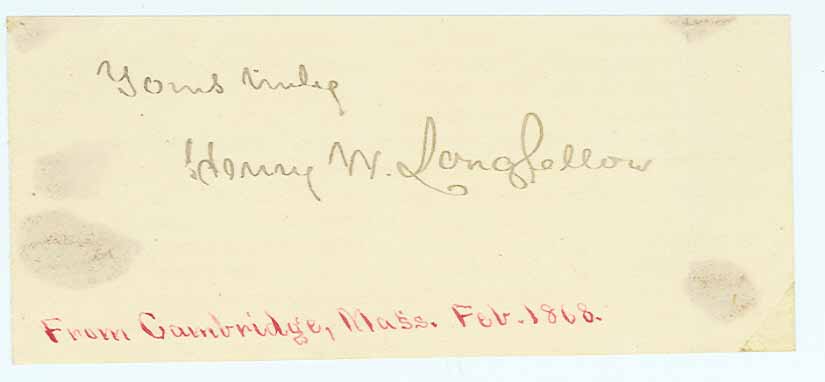 Yours truly
Henry W. Longfellow
From Cambridge, Mass. Feb. 1868.